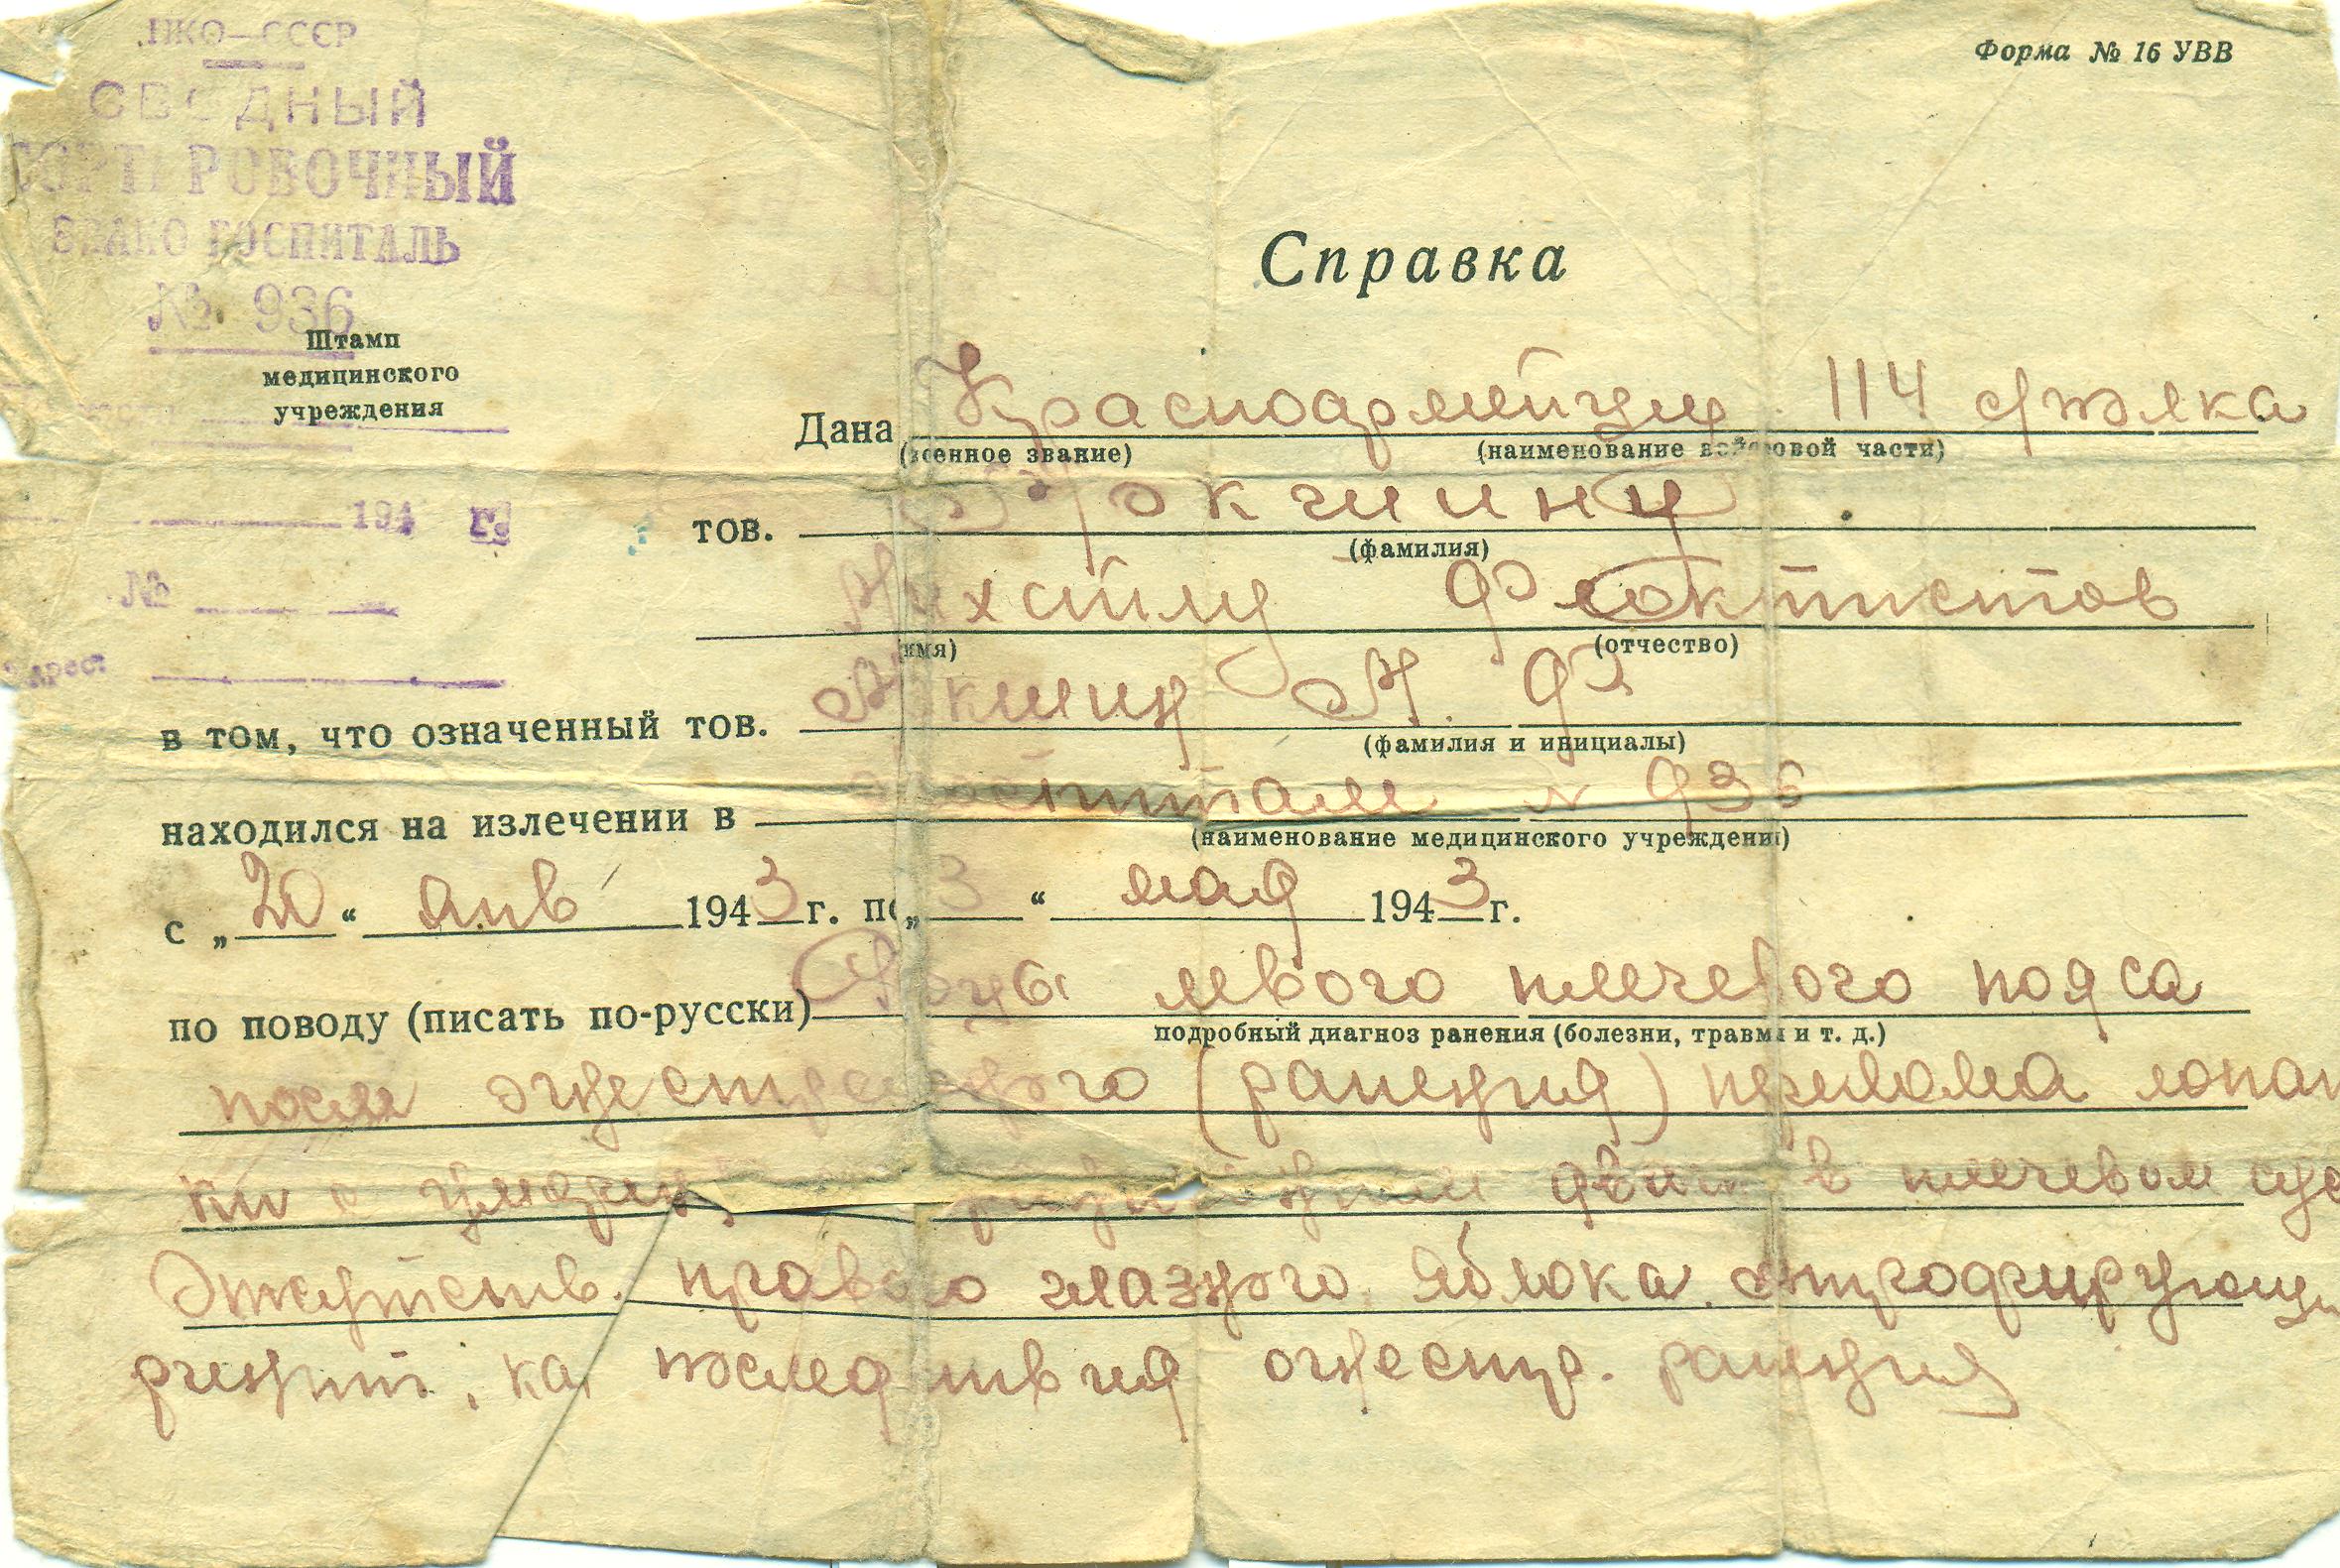 НКО—СССР
Форма № 16 УВВ
СВОДНЫЙ
СОРТИРОВОЧНЫЙ
ЭВАКО ГОСПИТАЛЬ
№ 936
Штамп
медицинского
учреждения
Справка
Дана Красноармейцу 114 с/полка
(военное звание) (наименование войсковой части)
194 г.
тов.
(фамилия)
№
Михаилу Феоктистов
(имя) (отчество)
Адрес:
в том, что означенный тов. М. Ф
(фамилия и инициалы)
находился на излечении в госпитале № 936
(наименование медицинского учреждения)
с „20“ янв 1943 г. по „3“ мая 1943 г.
по поводу (писать по-русски) Раны левого плечевого пояса
подробный диагноз ранения (болезни, травмы и т. д.)
после огнестрельного (ранения) перелома лопат
ки с в плечевом сус
Отсутств. правого глазного яблока.
последствия огнестр. ранения